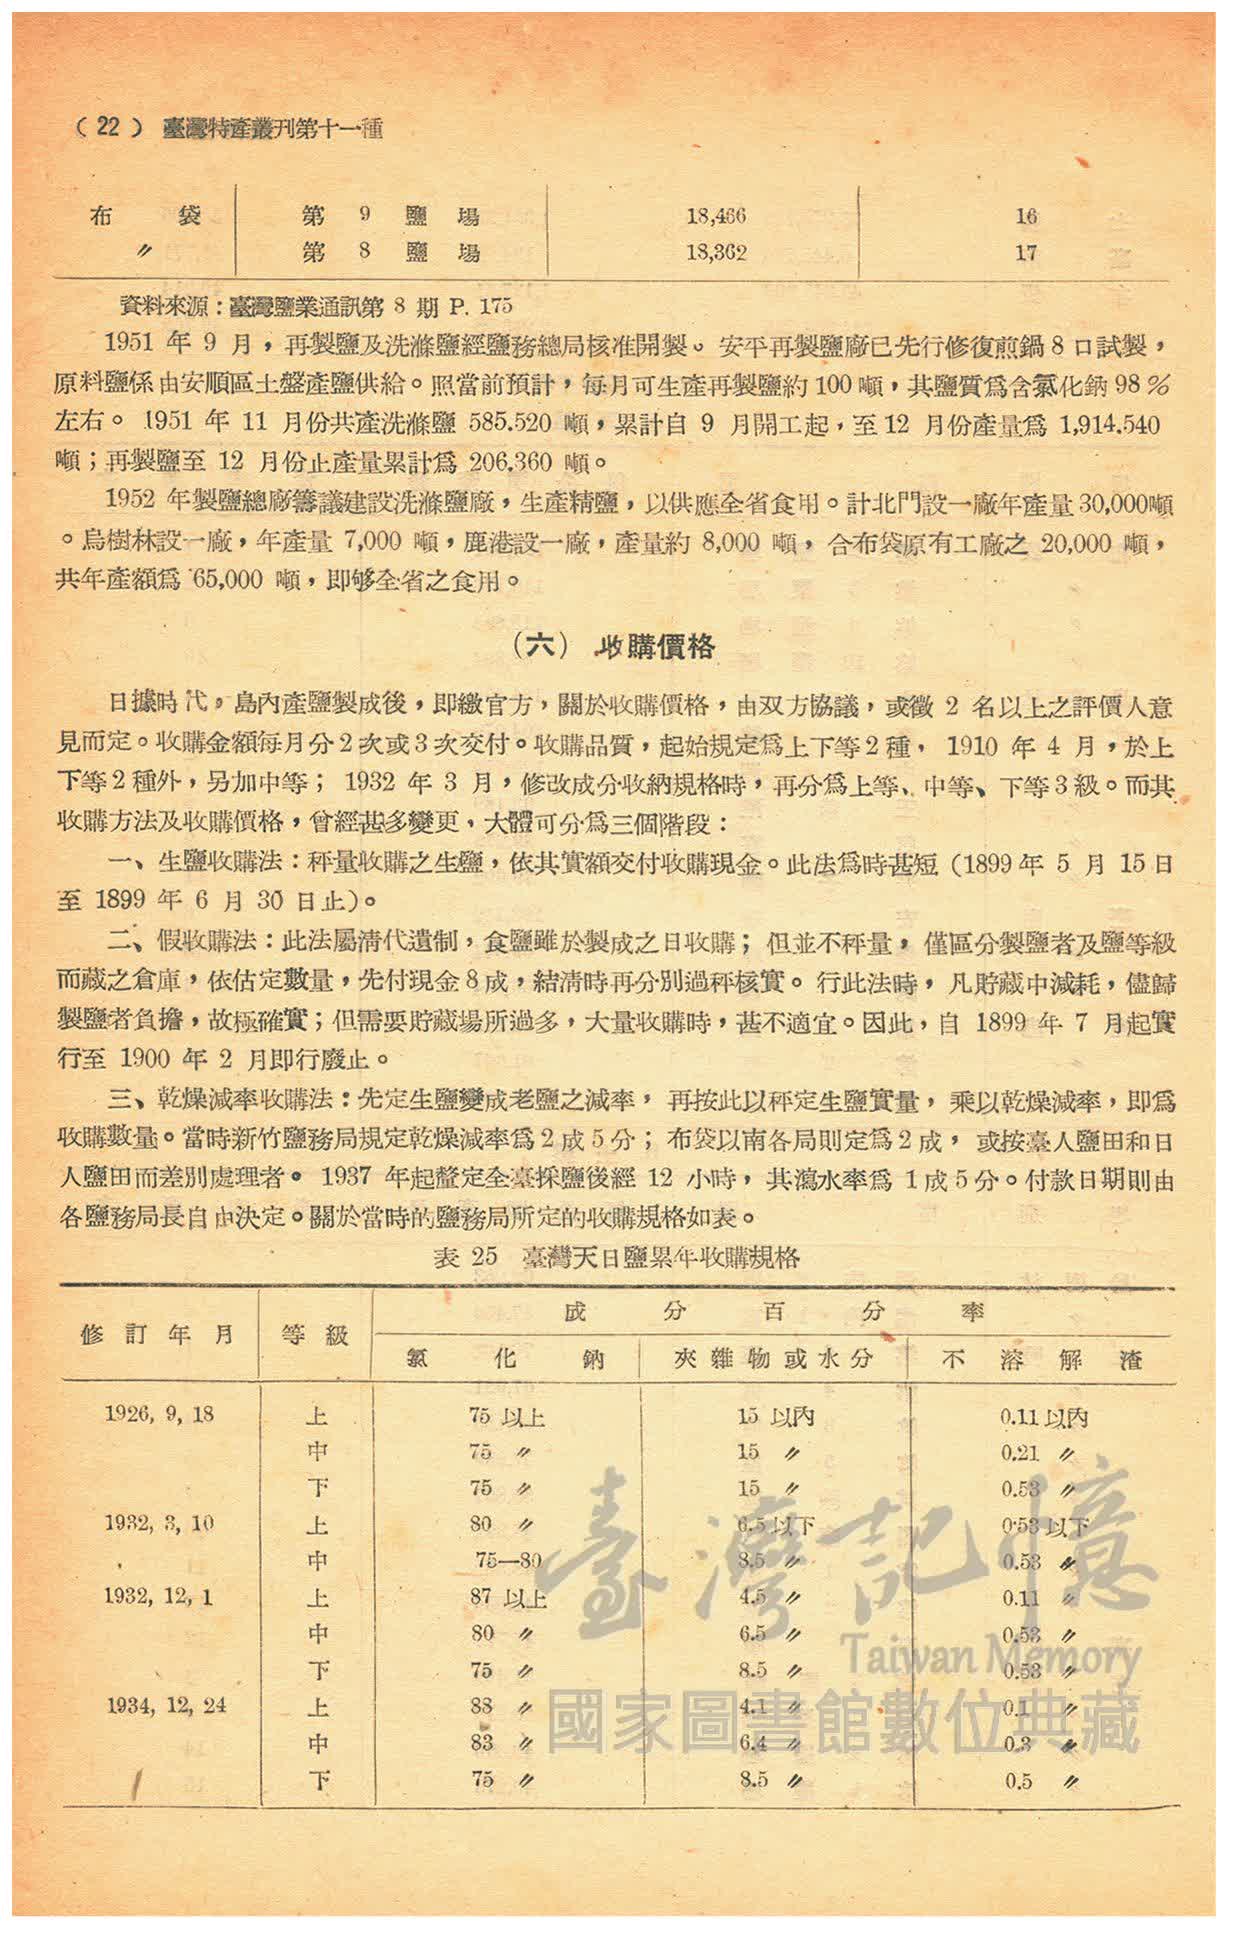 （22） 臺灣特產叢刊第十一種
布 袋 第 9 鹽 場 18,466 16
〃 第 8 鹽 場 18,362 17
資料來源：臺灣鹽業通訊第 8 期 P. 175
1951 年 9 月，再製鹽及洗滌鹽經鹽務總局核准開製。安平再製鹽廠已先行修復煎鍋 8 口試製，
原料鹽係由安順區土盤產鹽供給。照當前預計，每月可生產再製鹽約 100 噸，其鹽質爲含氯化鈉 98％
左右。 1951 年 11 月份共產洗滌鹽 585.520 噸，累計自 9 月開工起，至 12 月份產量爲 1,914.540
噸；再製鹽至 12 月份止產量累計爲 206.360 噸。
1952 年製鹽總廠籌議建設洗滌鹽廠，生產精鹽，以供應全省食用。計北門設一廠年產量 30,000噸
。烏樹林設一廠，年產量 7,000 噸，鹿港設一廠，產量約 8,000 噸， 合布袋原有工廠之 20,000 噸，
共年產額爲 65,000 噸，即够全省之食用。
（六） 收購價格
日據時代，島內產鹽製成後，即繳官方，關於收購價格，由双方協議，或徵 2 名以上之評價人意
見而定。收購金額每月分 2 次或 3 次交付。收購品質，起始規定爲上下等 2 種， 1910 年 4 月，於上
下等 2 種外，另加中等； 1932 年 3 月，修改成分收納規格時，再分爲上等、中等、下等 3 級。而其
收購方法及收購價格，曾經甚多變更，大體可分爲三個階段：
一、生鹽收購法：秤量收購之生鹽，依其實額交付收購現金。此法爲時甚短（1899 年 5 月 15 日
至 1899 年 6 月 30 日止）。
二、假收購法：此法屬清代遺制，食鹽雖於製成之日收購；但並不秤量， 僅區分製鹽者及鹽等級
而藏之倉庫，依估定數量，先付現金 8 成，結清時再分別過秤核實。行此法時， 凡貯藏中減耗，儘歸
製鹽者負擔，故極確實；但需要貯藏場所過多，大量收購時，甚不適宜。因此，自 1899 年 7 月起實
行至 1900 年 2 月即行廢止。
三、乾燥減率收購法：先定生鹽變成老鹽之減率， 再按此以秤定生鹽實量， 乘以乾燥減率，即爲
收購數量。當時新竹鹽務局規定乾燥減率爲 2 成 5 分；布袋以南各局則定爲 2 成， 或按臺人鹽田和日
人鹽田而差別處理者。 1937 年起釐定全臺採鹽後經 12 小時， 其瀉水率爲 1 成 5 分。付款日期則由
各鹽務局長自由決定。關於當時的鹽務局所定的收購規格如表。
表 25 臺灣天日鹽累年收購規格
修 訂 年 月 等 級 成 分 百 分 率
氯 化 鈉 夾 雜 物 或 水 分 不 溶 解 渣
1926, 9, 18 上 75 以上 15 以內 0.11 以內
中 75 〃 15 〃 0.21 〃
下 75 〃 15 〃 0.53 〃
1932, 3, 10 上 80 〃 6.5 以下 0.53 以下
中 75—80 8.5 〃 0.53 〃
1932, 12, 1 上 87 以上 4.5 〃 0.11 〃
中 80 〃 6.5 〃 0.53 〃
下 75 〃 8.5 〃 0.53 〃
1934, 12, 24 上 88 〃 4.1 〃 0.1 〃
中 83 〃 6.4 〃 0.3 〃
下 75 〃 8.5 〃 0.5 〃
臺灣記憶
Taiwan Memory
國家圖書館數位典藏